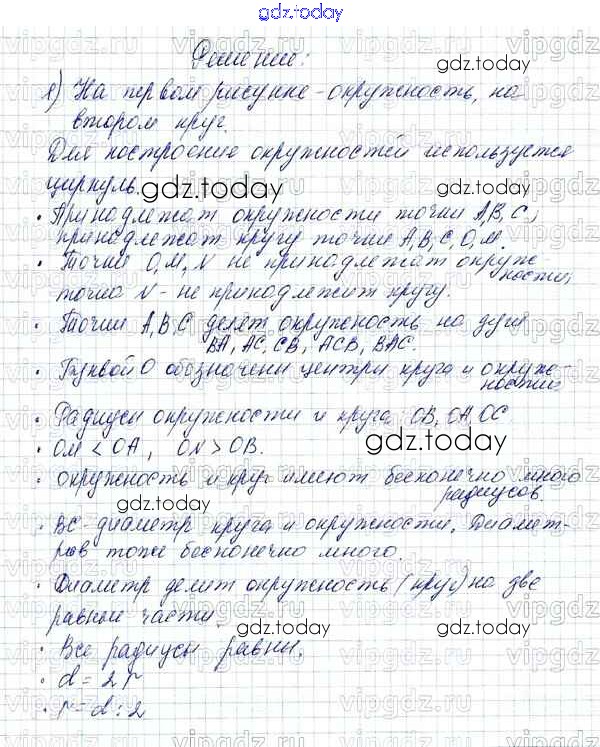 gdz.today
Решение:
gdz.today
1) На первом рисунке - окружность, на
втором круг.
gdz.today
Для построение окружностей используется
циркуль.
gdz.today
• Принадлежат окружности точки A, B, C;
принадлежат кругу точки A, B, C, O, M.
• Точки O, M, N не принадлежат окруж-
ности;
точка N - не принадлежит кругу.
gdz.today
• Точки A, B, C делят окружность на дуги
BA, AC, CB, ACB, BAC.
• Буквой O обозначены центры круга и окруж-
ности
• Радиусы окружности и круга: OB, OA, OC
• OM < OA, ON > OB.
gdz.today
• окружность и круг имеют бесконечно много
радиусов.
gdz.today
• BC - диаметр круга и окружности. Диамет-
ров тоже бесконечно много.
gdz.today
• Диаметр делит окружность (круг) на две
равные части.
gdz.today
gdz.today
• Все радиусы равны.
• d = 2r
• r = d : 2